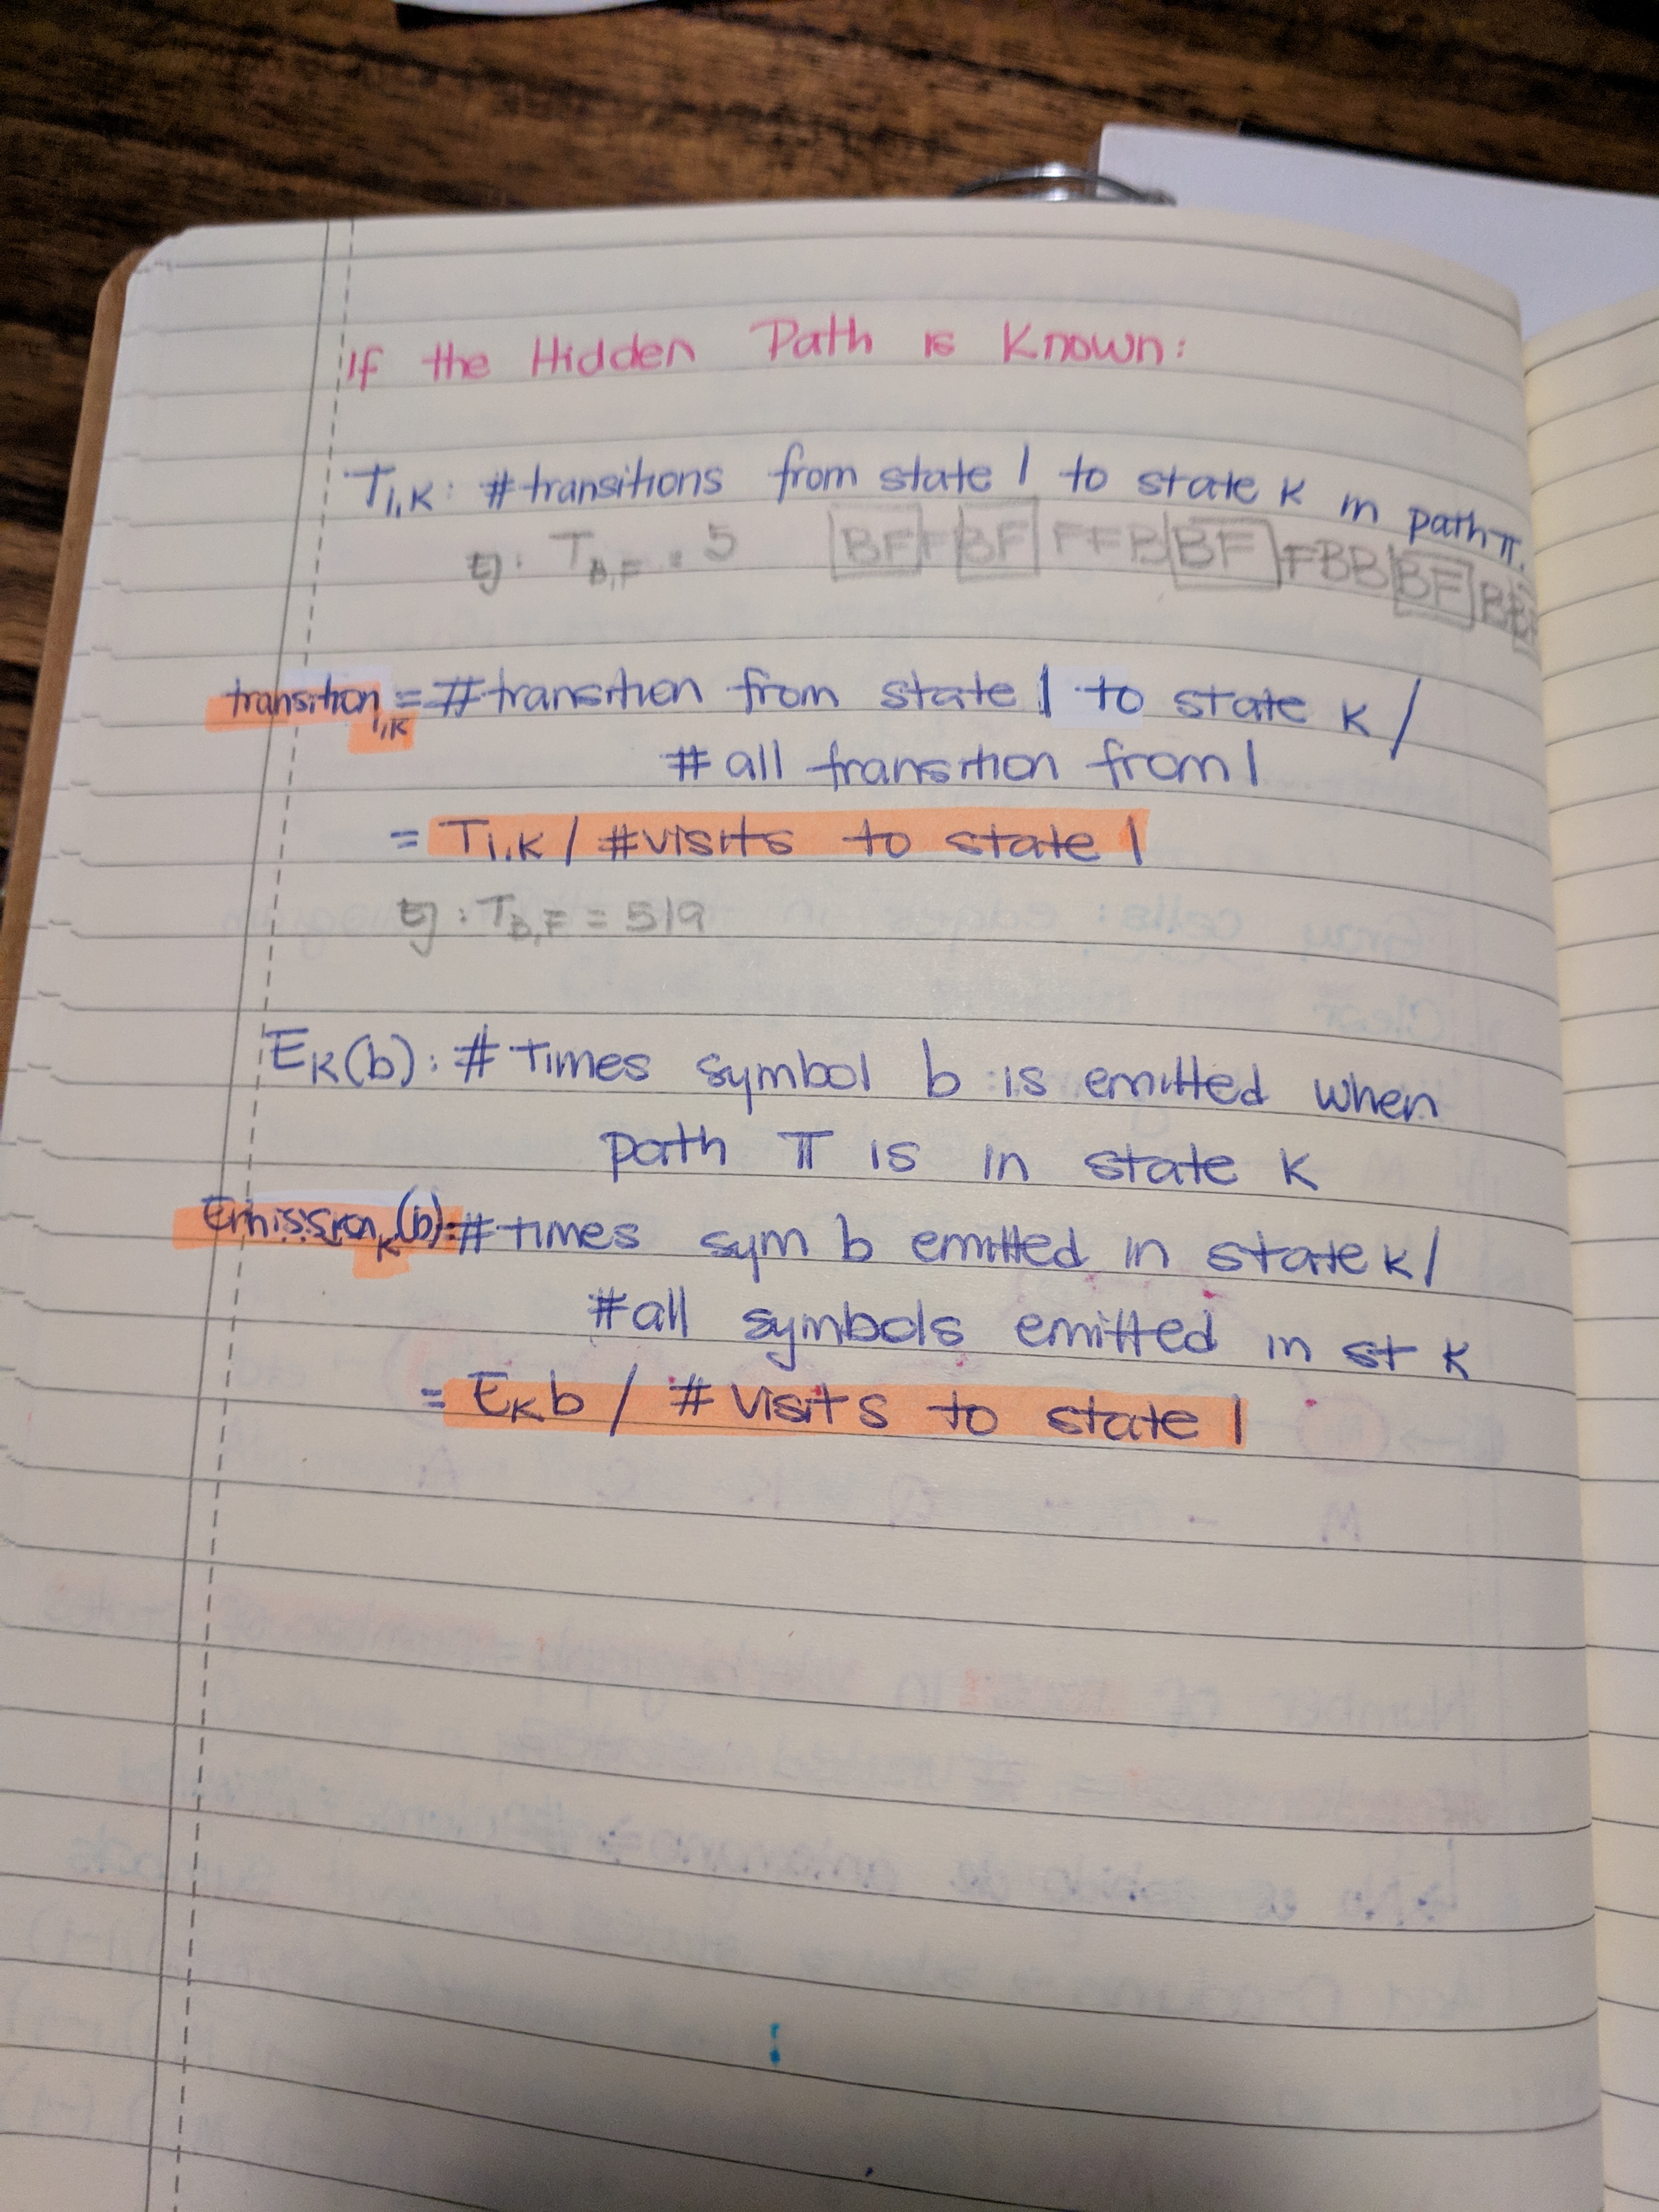 If the Hidden Path is Known:
Tl,K: #transitions from state l to state K in path π.
Ej: TB,F = 5 BFFBFFFBBBFFBBBFB
transition l,K = #transition from state l to state K /
#all transition from l
= Tl,K / #visits to state l
Ej: TB,F = 5/9
EK(b): # Times symbol b is emitted when
path π is in state K
EmissionK(b): # times sym b emitted in state K /
#all symbols emitted in st K
= EKb / # visits to state l